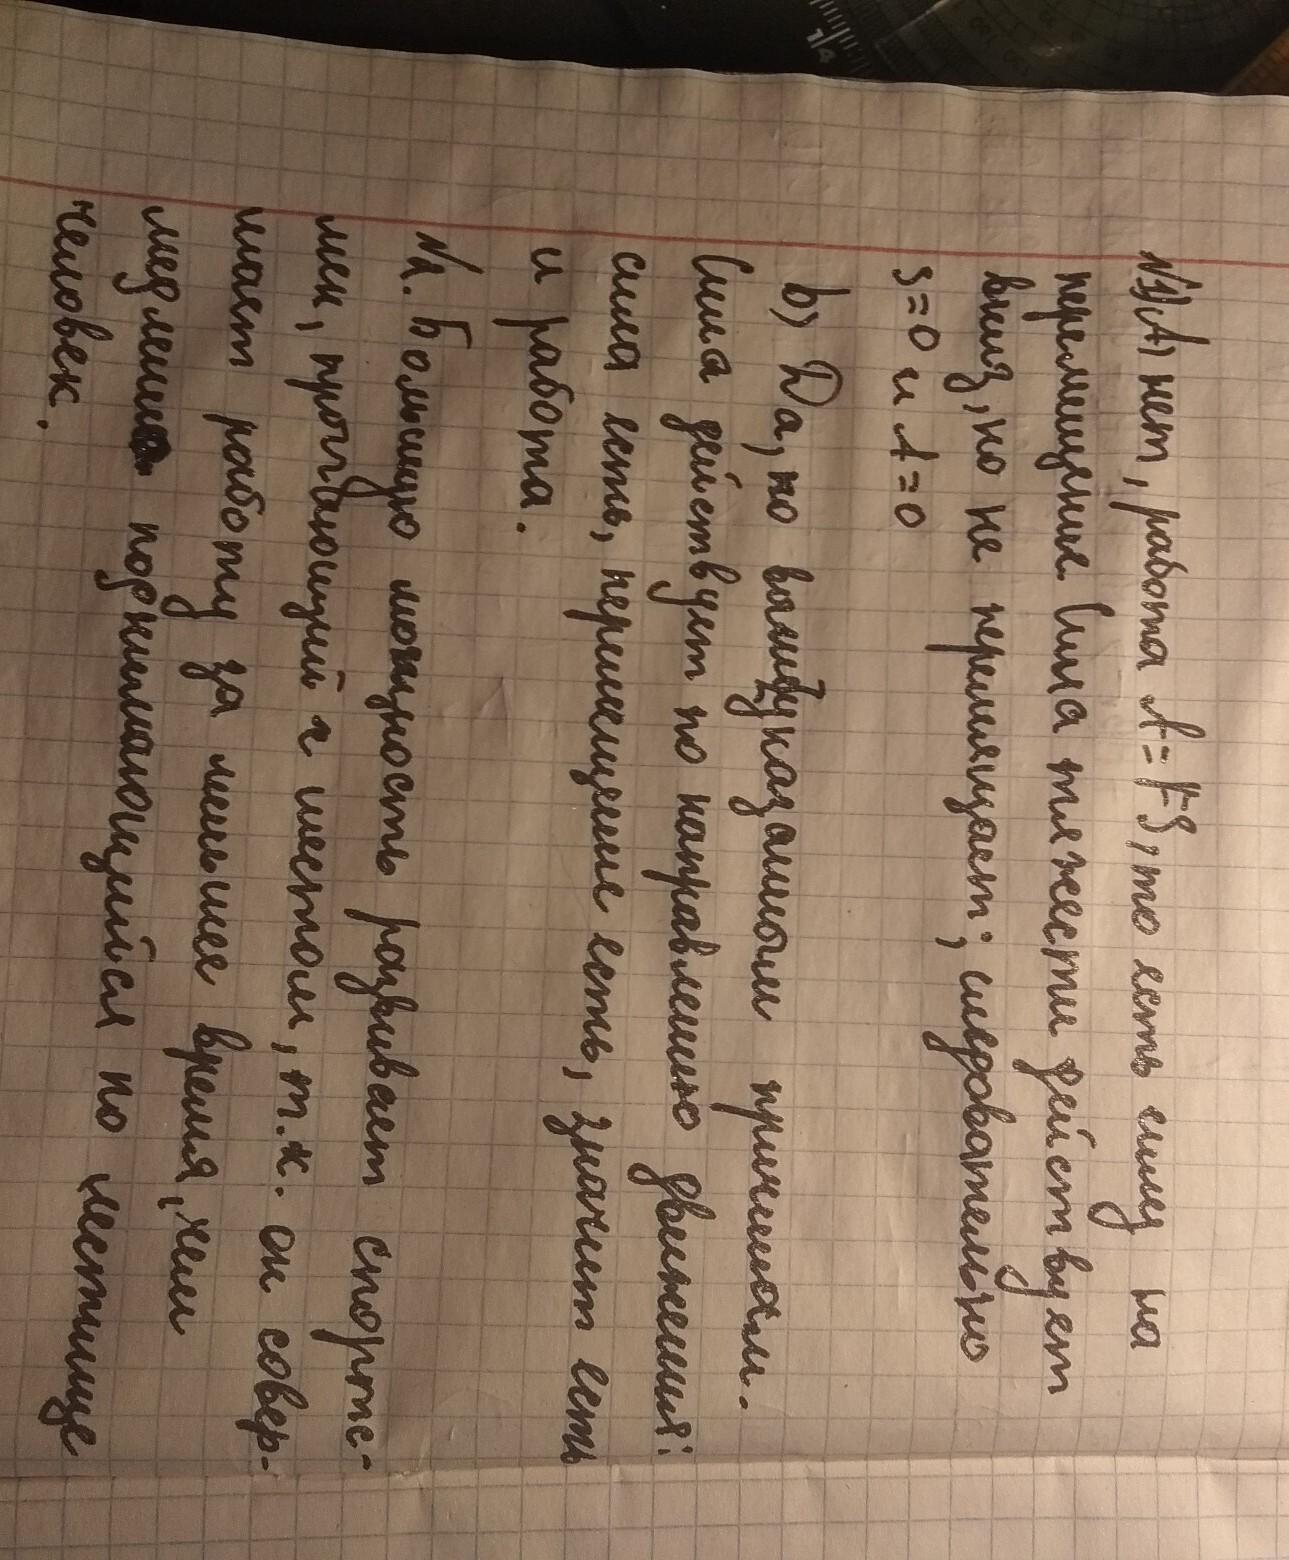 №1) А) нет, работа A=FS, то есть силу на
перемещение. Сила тяжести действует
вниз, но не перемещает; следовательно
s=0 и A=0
b) Да, по вышеуказанным причинам.
Сила действует по направлению движения:
сила есть, перемещение есть, значит есть
и работа.
№2. Большую мощность развивает спортс-
мен, прыгающий с шестом, т.к. он совер-
шает работу за меньшее время, чем
медленно поднимающийся по лестнице
человек.
14